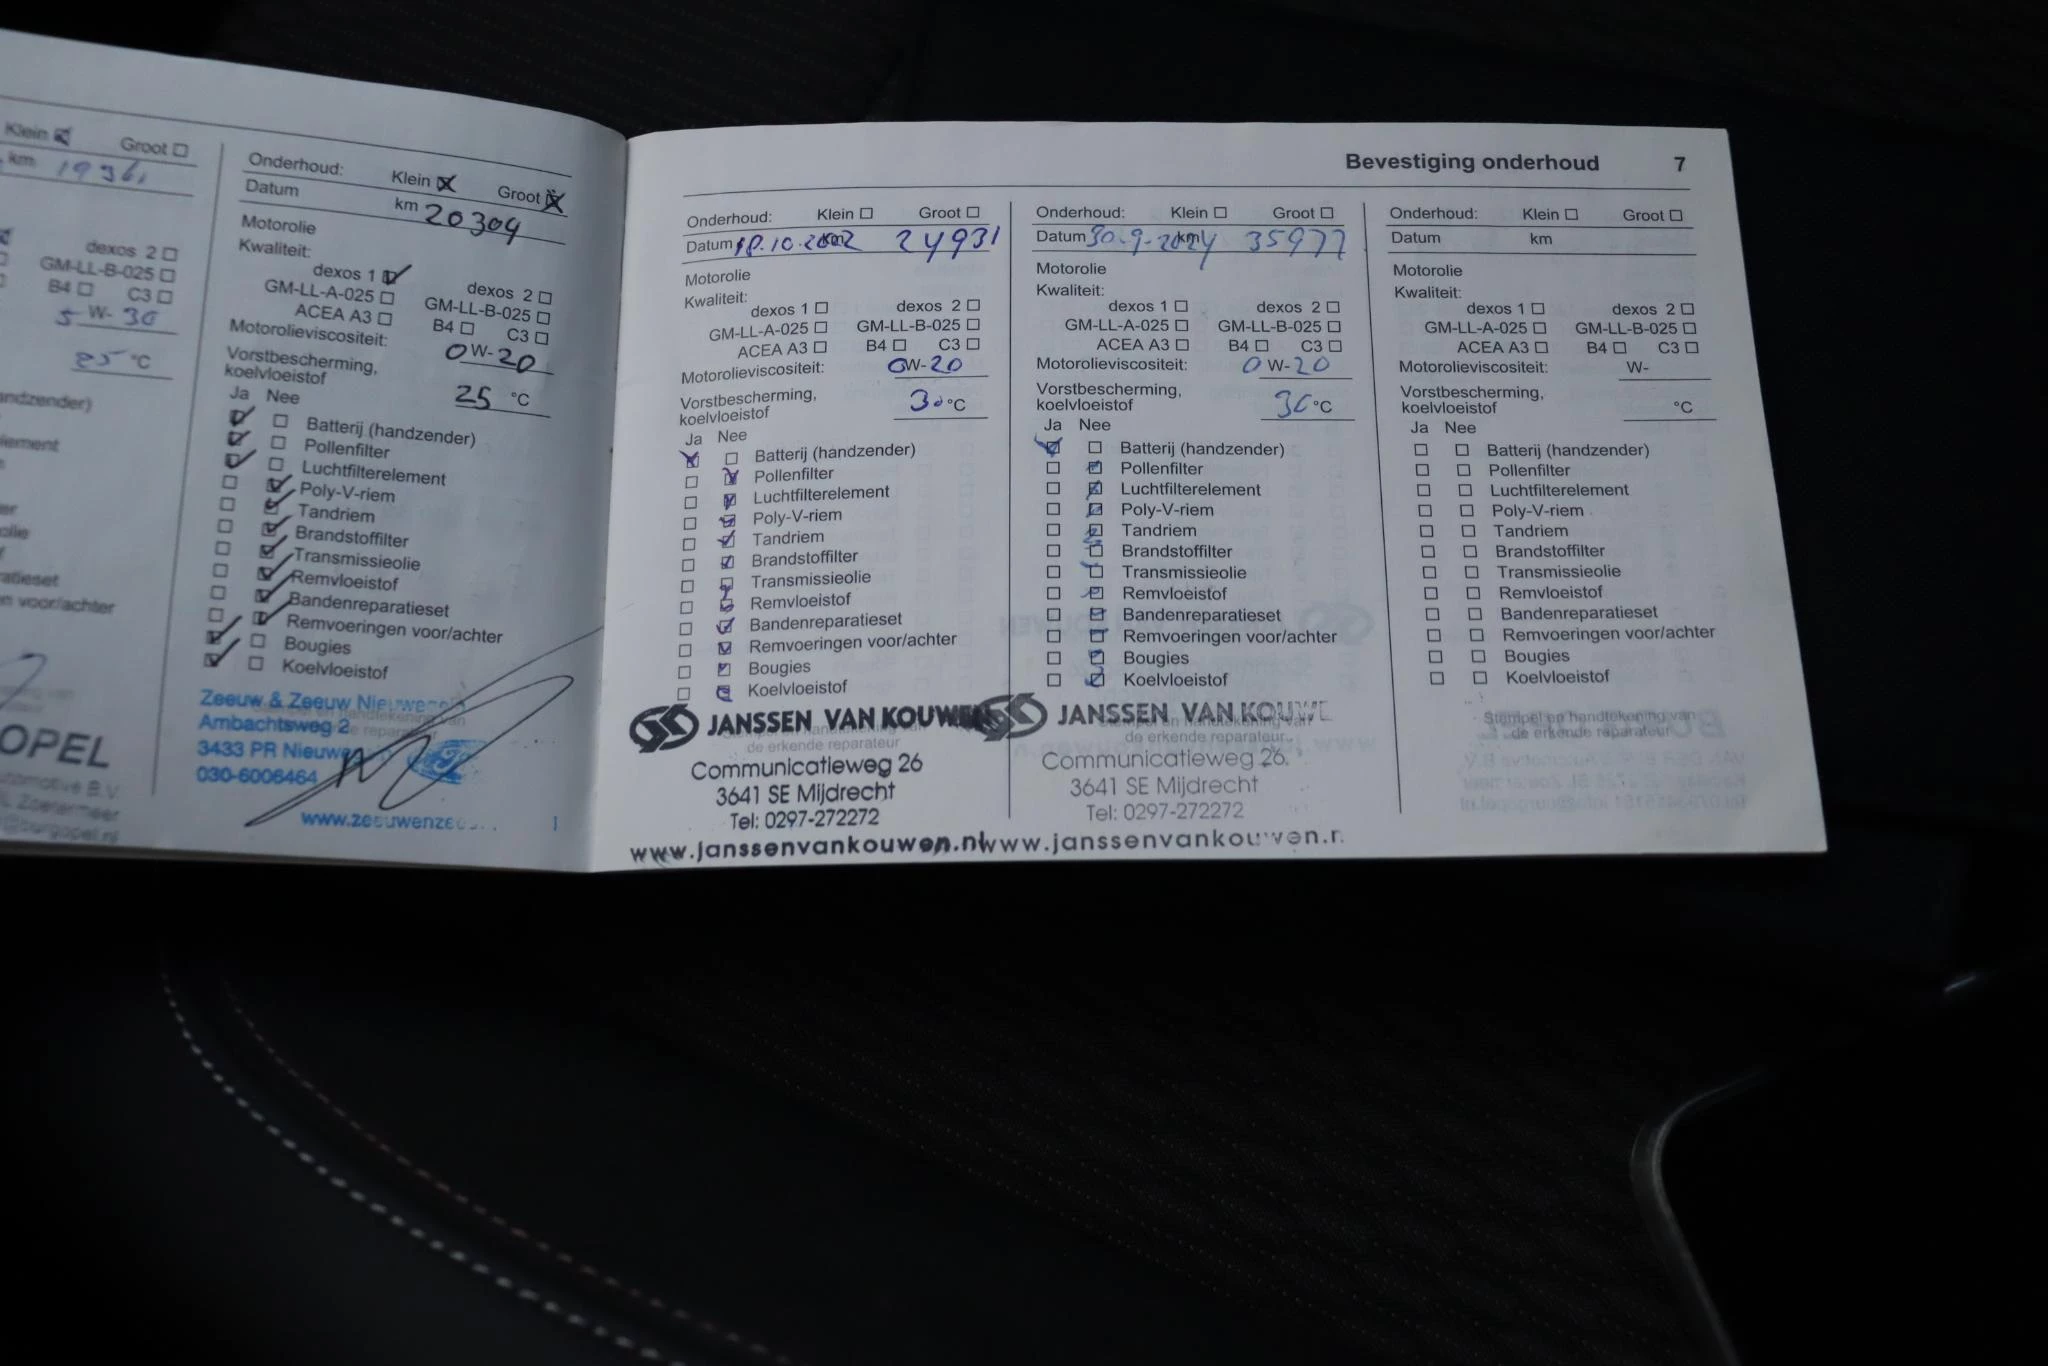 Klein Groot
km 1936
dexos 2
GM-LL-B-025
B4 C3
5 W- 30
25 °C
andzender)
ement
atieset
n voor/achter
OPEL
utomotive B.V.
Zoetermeer
Onderhoud: Klein Groot
Datum km 20304
Motorolie
Kwaliteit:
dexos 1 dexos 2
GM-LL-A-025 GM-LL-B-025
ACEA A3 B4 C3
Motorolieviscositeit: 0W-20
Vorstbescherming,
koelvloeistof 25 °C
Ja Nee
Batterij (handzender)
Pollenfilter
Luchtfilterelement
Poly-V-riem
Tandriem
Brandstoffilter
Transmissieolie
Remvloeistof
Bandenreparatieset
Remvoeringen voor/achter
Bougies
Koelvloeistof
Zeeuw & Zeeuw Nieuwegein
Ambachtsweg 2
3433 PR Nieuwe
030-6006464
www.zeeuwenzee
Bevestiging onderhoud 7
Onderhoud: Klein Groot
Datum 18.10.2022 km 24931
Motorolie
Kwaliteit:
dexos 1 dexos 2
GM-LL-A-025 GM-LL-B-025
ACEA A3 B4 C3
Motorolieviscositeit: 0W-20
Vorstbescherming,
koelvloeistof 30 °C
Ja Nee
Batterij (handzender)
Pollenfilter
Luchtfilterelement
Poly-V-riem
Tandriem
Brandstoffilter
Transmissieolie
Remvloeistof
Bandenreparatieset
Remvoeringen voor/achter
Bougies
Koelvloeistof
JANSSEN VAN KOUWEN
de erkende reparateur
Communicatieweg 26
3641 SE Mijdrecht
Tel: 0297-272272
www.janssenvankouwen.nl
Onderhoud: Klein Groot
Datum 30-9-2024 km 35977
Motorolie
Kwaliteit:
dexos 1 dexos 2
GM-LL-A-025 GM-LL-B-025
ACEA A3 B4 C3
Motorolieviscositeit: 0W-20
Vorstbescherming,
koelvloeistof 30 °C
Ja Nee
Batterij (handzender)
Pollenfilter
Luchtfilterelement
Poly-V-riem
Tandriem
Brandstoffilter
Transmissieolie
Remvloeistof
Bandenreparatieset
Remvoeringen voor/achter
Bougies
Koelvloeistof
JANSSEN VAN KOUWE
de erkende reparateur
Communicatieweg 26
3641 SE Mijdrecht
Tel: 0297-272272
www.janssenvankouwen.n
Onderhoud: Klein Groot
Datum km
Motorolie
Kwaliteit:
dexos 1 dexos 2
GM-LL-A-025 GM-LL-B-025
ACEA A3 B4 C3
Motorolieviscositeit: W-
Vorstbescherming,
koelvloeistof °C
Ja Nee
Batterij (handzender)
Pollenfilter
Luchtfilterelement
Poly-V-riem
Tandriem
Brandstoffilter
Transmissieolie
Remvloeistof
Bandenreparatieset
Remvoeringen voor/achter
Bougies
Koelvloeistof
Stempel en handtekening van
de erkende reparateur